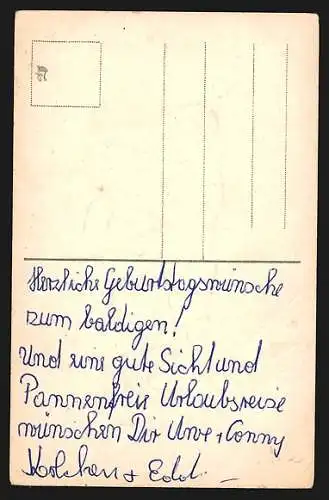 Herzliche Geburtstagswünsche
zum baldigen!
Und eine gute Sicht und
Pannenfreie Urlaubsreise
wünschen Dir Uwe + Conny
+ Eddi